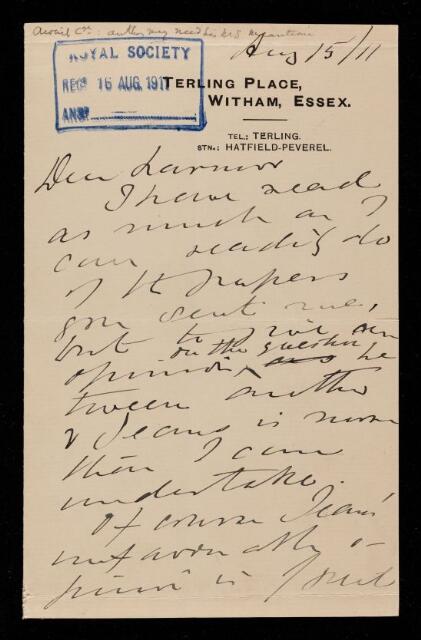 Await Cee: author may need his MS meantime
Aug 15/11
ROYAL SOCIETY
RECD 16 AUG. 1911
ANSD
TERLING PLACE,
WITHAM, ESSEX.
TEL.: TERLING.
STN.: HATFIELD-PEVEREL.
Dear Larmor
I have read
as much as I
can readily do
of the papers
you sent me,
but to give an
on the question
opinion, as be
tween author
& Jeans is more
than I can
undertake.
Of course Jeans'
unfavourable o-
pinion is